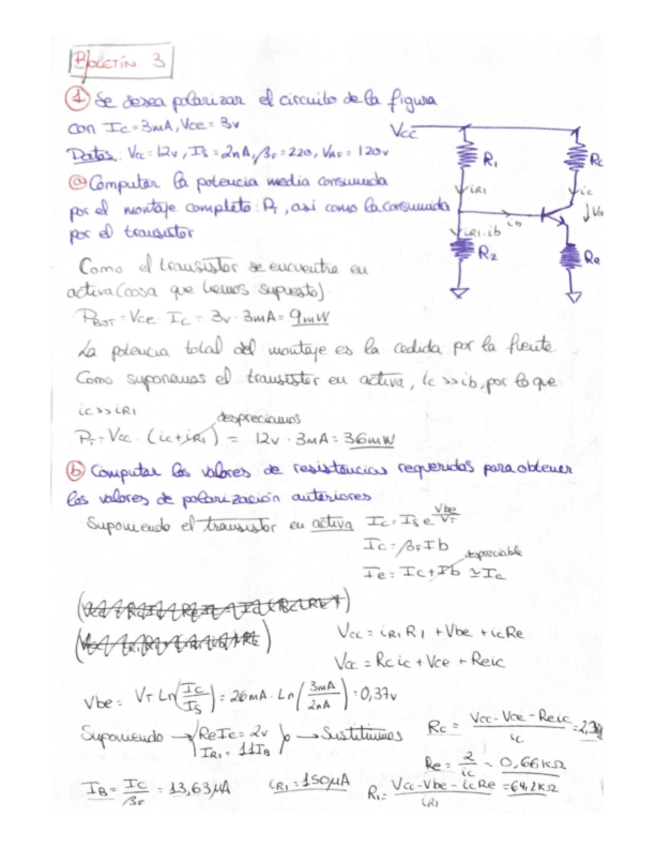 BOLETÍN 3
① Se desea polarizar el circuito de la figura
con Ic=3mA, Vce=3v
Datos: Vcc=12v, Is=2nA, βF=220, VAF=120v
Vcc
R1
Rc
iR1
ic
ib
iR1-ib
R2
Re
ⓐ Computar la potencia media consumida
por el montaje completo: PT, así como la consumida
por el transistor
Como el transistor se encuentra en
activa (cosa que hemos supuesto)
PBJT = Vce · Ic = 3v · 3mA = 9mW
La potencia total del montaje es la cedida por la fuente
Como suponemos el transistor en activa, ic >> ib, por lo que
ic >> iR1
despreciamos
PT = Vcc · (ic + iR1) = 12v · 3mA = 36mW
ⓑ Computar los valores de resistencias requeridos para obtener
los valores de polarización anteriores
Suponiendo el transistor en activa Ic = Is e^(Vbe/VT)
Ic = βF Ib
despreciable
Ie = Ic + Ib ≃ Ic
Vcc = iR1 R1 + Vbe + ic Re
Vcc = Rc ic + Vce + Re ic
Vbe = VT Ln(Ic/Is) = 26mA · Ln(3mA/2nA) = 0,37v
Suponiendo → { Re Ie = 2v
IR1 = 11 IB } → Sustituimos
Rc = (Vcc - Vce - Re ic)/ic =
Re = 2/ic = 0,66KΩ
IB = Ic/βF = 13,63μA
iR1 = 150μA
R1 = (Vcc - Vbe - ic Re)/iR1 = 64,2KΩ